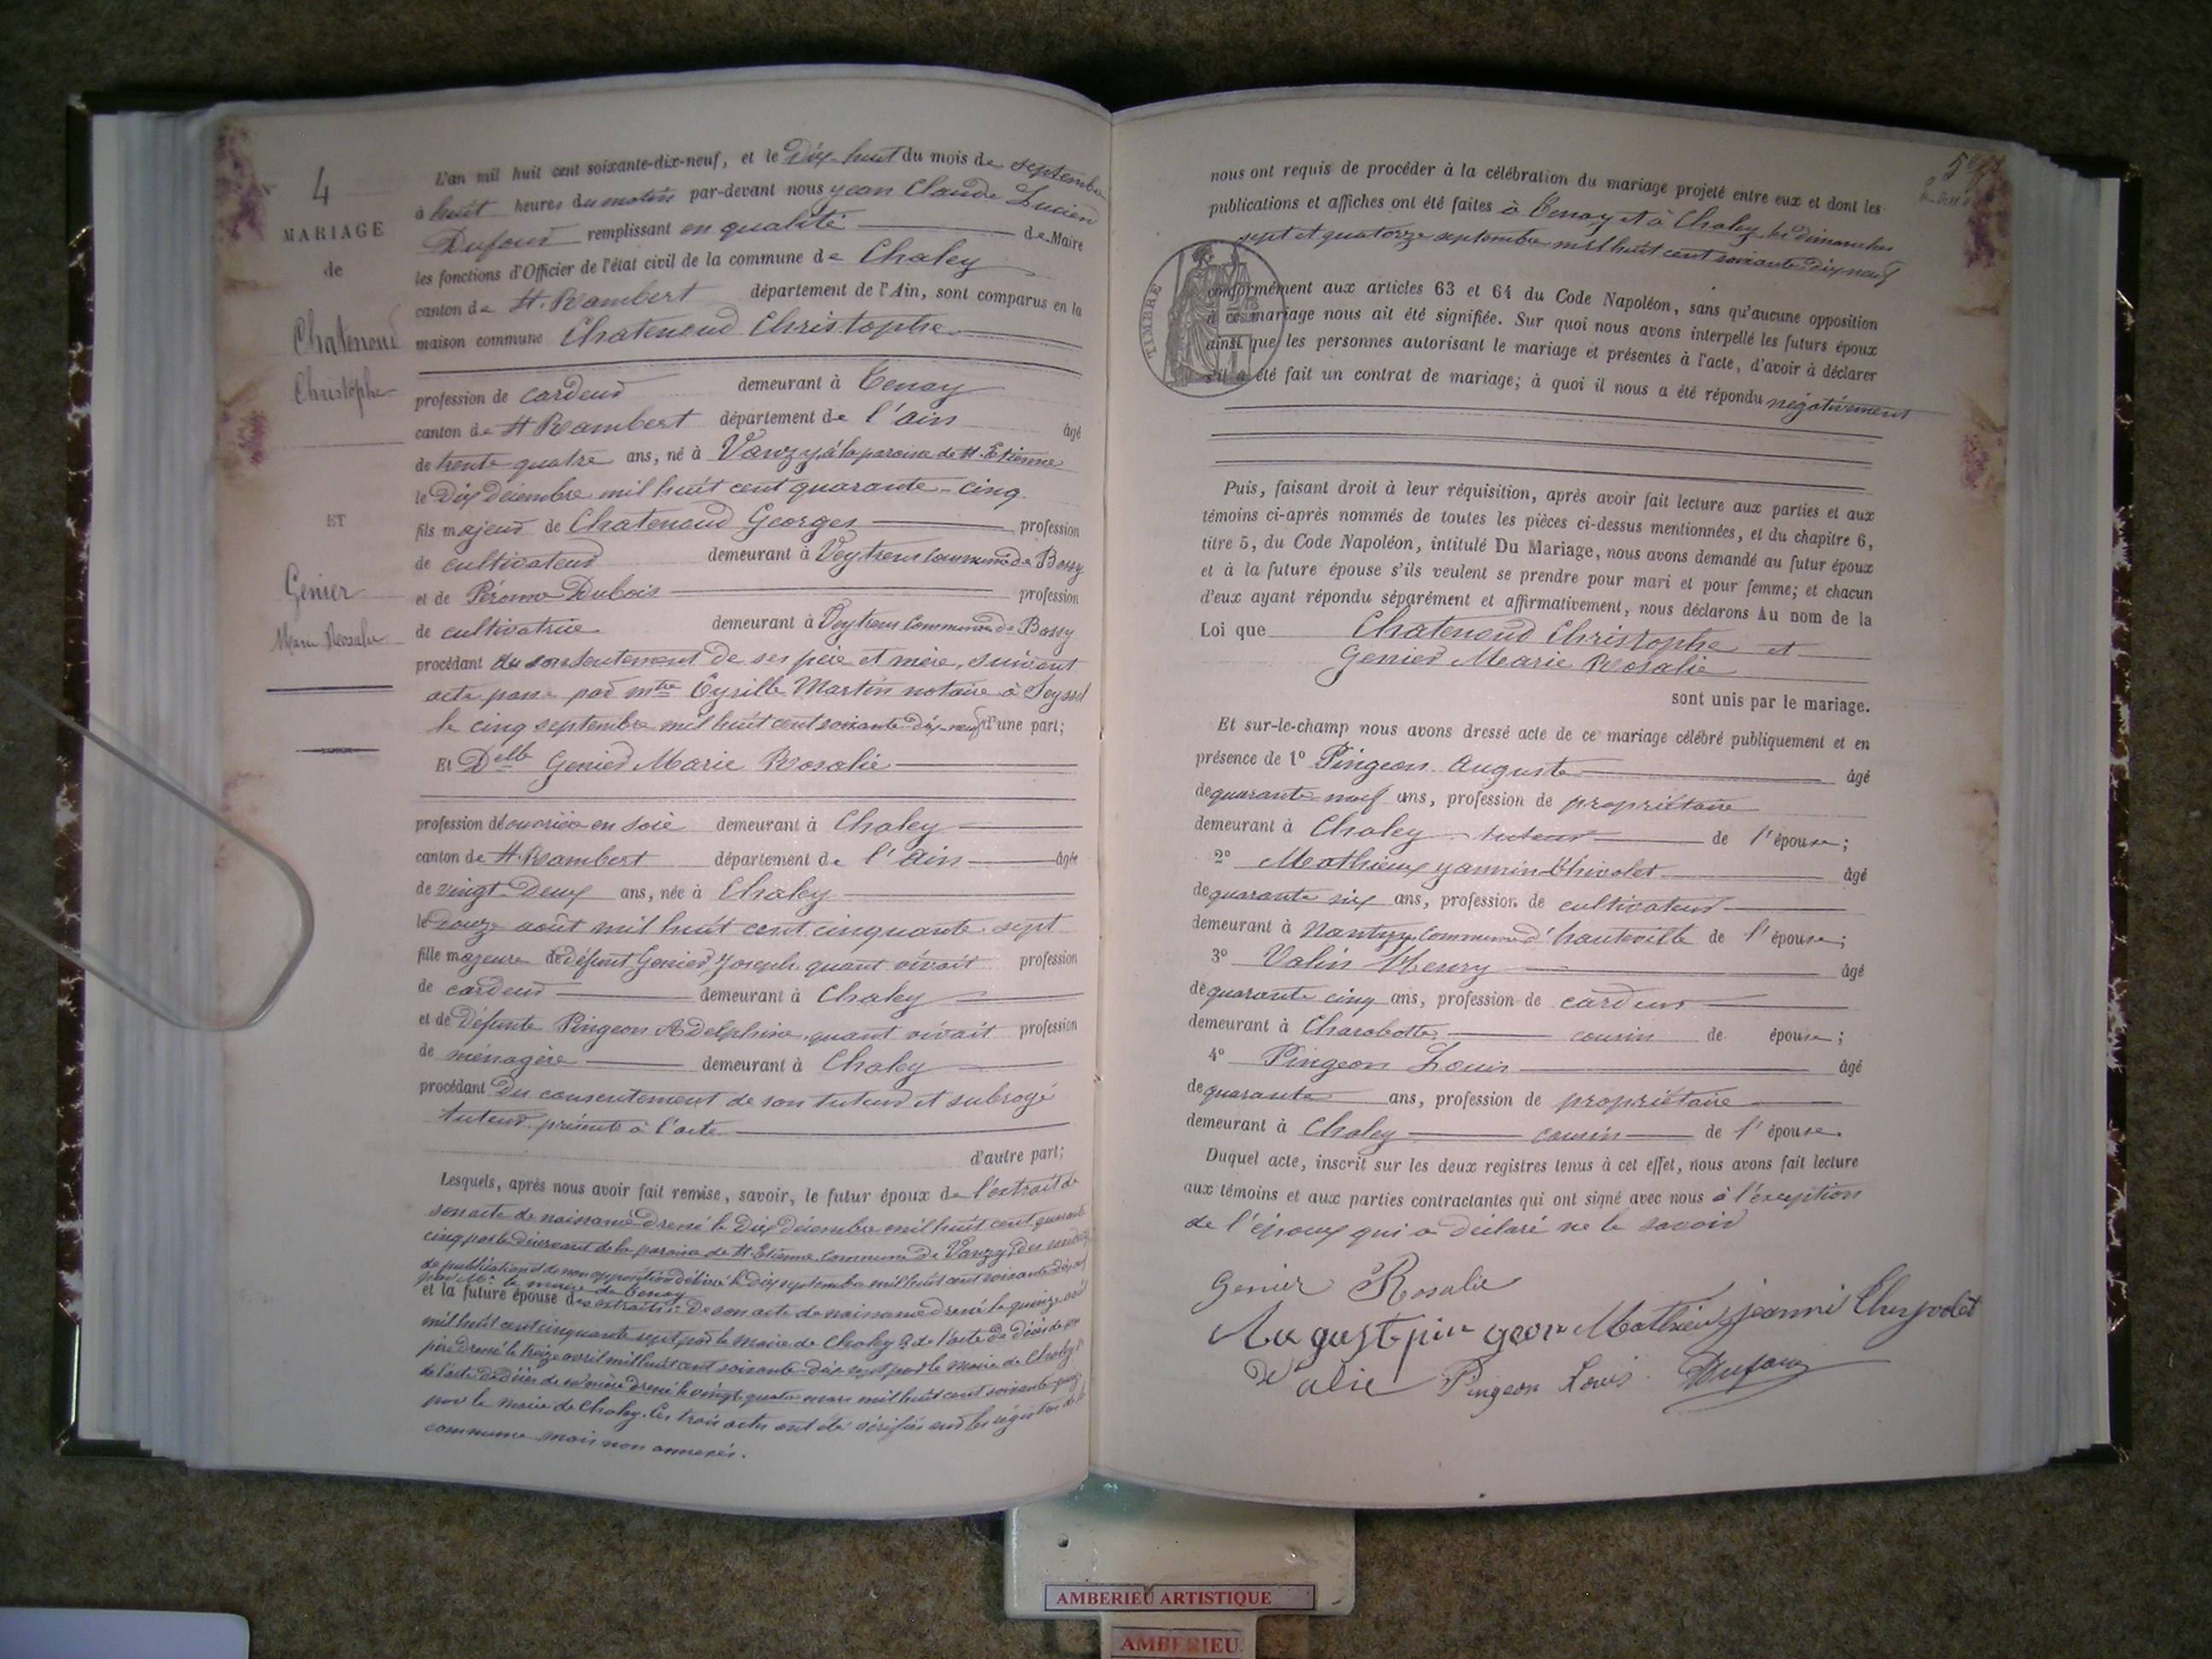 4
MARIAGE
de
Chatenoud
Christophe
ET
Genier
Marie Rosalie
L'an mil huit cent soixante-dix-neuf, et le Dix-huit du mois de septembre
à huit heures du matin par-devant nous jean Claude Lucien
Dufour remplissant en qualité de Maire
les fonctions d'Officier de l'état civil de la commune de Chaley
canton de St. Rambert département de l'Ain, sont comparus en la
maison commune Chatenoud Christophe
profession de cardeur demeurant à Tenay
canton de St Rambert département de l'ain âgé
de trente-quatre ans, né à Vanzy, à la paroisse de St. Etienne
le Dix décembre mil huit cent quarante-cinq
fils majeur de Chatenoud Georges profession
de cultivateur demeurant à Veytrens commune de Bassy
et de Péronne Dubois profession
de cultivatrice demeurant à Veytrens commune de Bassy
procédant du consentement de ses père et mère, suivant
acte passé par mtre Cyrille Martin notaire à Seyssel
le cinq septembre mil huit cent soixante-dix-neuf d'une part;
Et Delle Genier Marie Rosalie
profession d'ouvrière en soie demeurant à Chaley
canton de St. Rambert département de l'Ain âgée
de vingt-deux ans, née à Chaley
le douze août mil huit cent cinquante-sept
fille majeure de défunt Genier Joseph, quant vivait profession
de cardeur demeurant à Chaley
et de Défunte Pingeon Adelphine, quant vivait profession
de ménagère demeurant à Chaley
procédant Du consentement de son tuteur et subrogé
tuteur présents à l'acte
d'autre part;
Lesquels, après nous avoir fait remise, savoir, le futur époux de l'extrait de
son acte de naissance dressé le Dix décembre mil huit cent quarante
cinq par le desservant de la paroisse de St. Etienne, commune de Vanzy, du
de publication et de non opposition délivré le dix septembre mil huit cent soixante dix
par Mr. le maire de Tenay
et la future épouse des extraits: De son acte de naissance dressé le quinze août
mil huit cent cinquante sept par le Maire de Chaley, de l'acte de décès de son
père dressé le treize avril mil huit cent soixante-dix-sept par le Maire de Chaley
de l'acte de décès de sa mère dressé le vingt-quatre mars mil huit cent soixante
par le Maire de Chaley. Ces trois actes ont été vérifiés sur les registres de la
commune, mais non annexés.
nous ont requis de procéder à la célébration du mariage projeté entre eux et dont les
publications et affiches ont été faites à Tenay et à Chaley, les dimanches
sept et quatorze septembre mil huit cent soixante-dix-neuf
TIMBRE
conformément aux articles 63 et 64 du Code Napoléon, sans qu'aucune opposition
à ce mariage nous ait été signifiée. Sur quoi nous avons interpellé les futurs époux
ainsi que les personnes autorisant le mariage et présentes à l'acte, d'avoir à déclarer
s'il a été fait un contrat de mariage; à quoi il nous a été répondu négativement
Puis, faisant droit à leur réquisition, après avoir fait lecture aux parties et aux
témoins ci-après nommés de toutes les pièces ci-dessus mentionnées, et du chapitre 6,
titre 5, du Code Napoléon, intitulé Du Mariage, nous avons demandé au futur époux
et à la future épouse s'ils veulent se prendre pour mari et pour femme; et chacun
d'eux ayant répondu séparément et affirmativement, nous déclarons Au nom de la
Loi que Chatenoud Christophe et
Genier Marie Rosalie
sont unis par le mariage.
Et sur-le-champ nous avons dressé acte de ce mariage célébré publiquement et en
présence de 1° Pingeon Auguste âgé
de quarante-neuf ans, profession de propriétaire
demeurant à Chaley tuteur de l'épouse;
2° Mathieux Jannin-Chivolet âgé
de quarante six ans, profession de cultivateur
demeurant à Nantuy commune d'hauteville de l'épouse;
3° Valin Henry âgé
de quarante cinq ans, profession de cardeur
demeurant à Charabotte cousin de épouse;
4° Pingeon Louis âgé
de quarante ans, profession de propriétaire
demeurant à Chaley cousin de l'épouse.
Duquel acte, inscrit sur les deux registres tenus à cet effet, nous avons fait lecture
aux témoins et aux parties contractantes qui ont signé avec nous à l'exception
de l'époux qui a déclaré ne le savoir
Genier Rosalie
August pin geon Mathieux jeanni
Pingeon Louis Dufour
AMBERIEU ARTISTIQUE
AMBERIEU